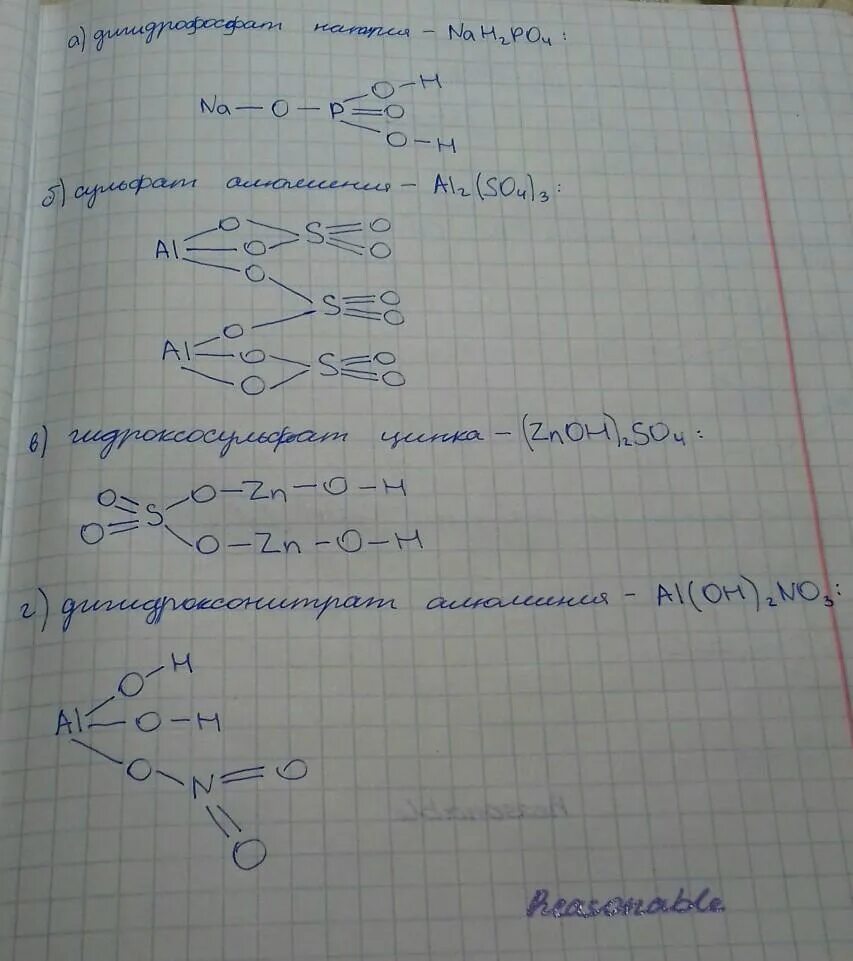 а) дигидрофосфат натрия – NaH₂PO₄:
O–H
Na–O–P=O
O–H
б) сульфат алюминия – Al₂(SO₄)₃:
O S=O
Al–O =O
O
S=O
O =O
Al–O S=O
O =O
в) гидроксосульфат цинка – (ZnOH)₂SO₄:
O= S–O–Zn–O–H
O= O–Zn–O–H
г) дигидроксонитрат алюминия – Al(OH)₂NO₃:
O–H
Al–O–H
O–N=O
O
Reasonable